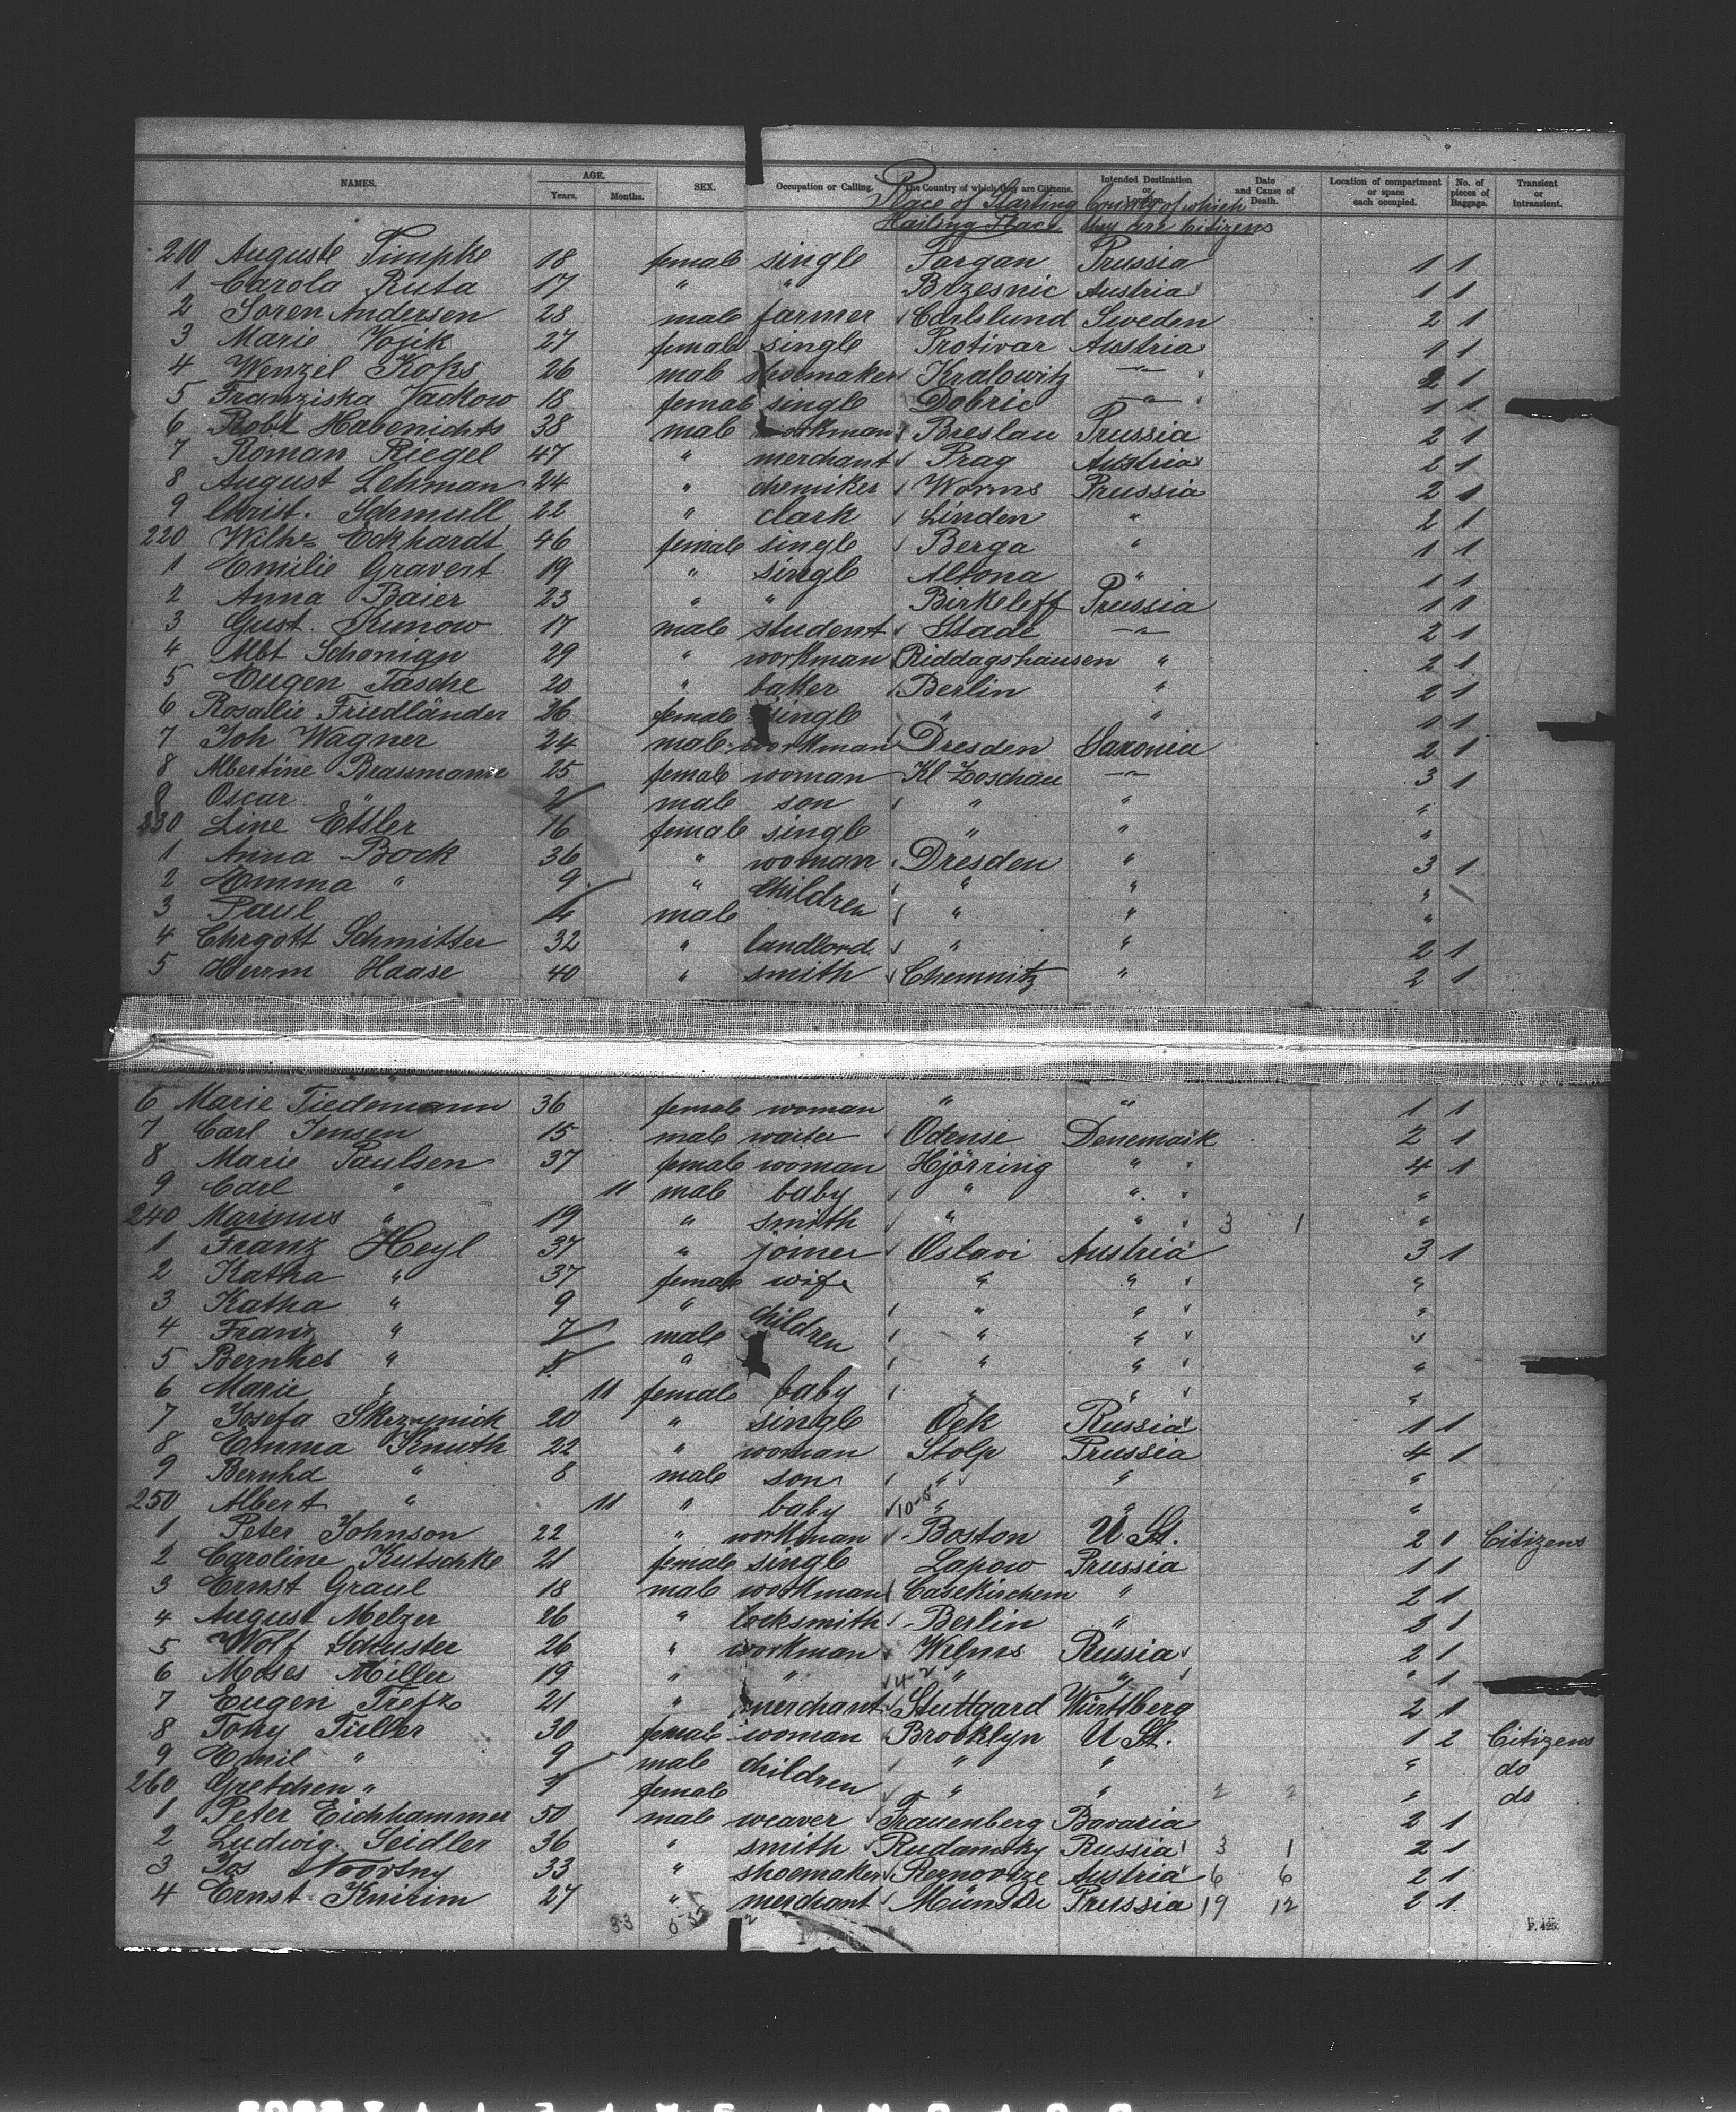 NAMES. AGE. Years. Months. SEX. Occupation or Calling. The Country of which they are Citizens. Intended Destination or Location. Date and Cause of Death. Location of compartment or space each occupied. No. of pieces of Baggage. Transient or Intransient.
Place of Starting Country of which
Hailing Place they are Citizens
210 Auguste Timpke 18 female single Targan Prussia 1 1
1 Carola Ruta 17 " " Brzesnic Austria 1 1
2 Soren Andersen 28 male farmer Carlslund Sweden 2 1
3 Marie Vojik 27 female single Protivar Austria 1 1
4 Wenzel Koks 26 male shoemaker Kralowitz " 2 1
5 Franziska Jackow 18 female single Dobric " 1 1
6 Robt Habenichts 38 male workman Breslau Prussia 2 1
7 Roman Riegel 47 " merchant Prag Austria 2 1
8 August Lehman 24 " chemiker Worms Prussia 2 1
9 Christ. Schmull 22 " clark Linden " 2 1
220 Wilh. Eckhardt 46 female single Berga " 1 1
1 Emilie Gravert 19 " single Altona " 1 1
2 Anna Baier 23 " " Birkeleff Prussia 1 1
3 Gust. Kunow 17 male student Stade " 2 1
4 Albt Schonign 29 " workman Riddagshausen " 2 1
5 Eugen Tasche 20 " baker Berlin " 2 1
6 Rosalie Friedländer 26 female single " " 1 1
7 Joh Wagner 24 male workman Dresden Saxonia 2 1
8 Albertine Brassmann 25 female woman Kl Zoschau " 3 1
9 Oscar " 2 male son " " "
230 Line Etsler 16 female single " " "
1 Anna Bock 36 " woman Dresden " 3 1
2 Emma " 9 " children " " "
3 Paul 4 male " " "
4 Chrgott Schmitter 32 " landlord " " 2 1
5 Herrm Haase 40 " smith Chemnitz " 2 1
6 Marie Tiedemann 36 female woman " " 1 1
7 Carl Jensen 15 male waiter Odense Denemark 2 1
8 Marie Paulsen 37 female woman Hjörring " 4 1
9 Carl " 11 male baby " " "
240 Marinus " 19 " smith " " 3 1 "
1 Franz Heyl 37 " joiner Oslavi Austria 3 1
2 Katha " 37 female wife " " "
3 Katha " 9 " children " " "
4 Franz " 7 male " " "
5 Bernhd " " " " "
6 Marie " 11 female baby " " "
7 Josefa Skrzynick 20 " single Oek Russia 1 1
8 Emma Knuth 22 " woman Stolp Prussia 4 1
9 Bernhd " 8 male son " " "
250 Albert " 11 " baby 10-5 " " "
1 Peter Johnson 22 " workman Boston U St. 2 1 Citizens
2 Caroline Kutschke 21 female single Lapow Prussia 1 1
3 Ernst Graul 18 male workman Casekirchem " 2 1
4 August Melzer 26 " locksmith Berlin " 3 1
5 Wolf Schuster 26 " workman Welnes Russia 2 1
6 Moses Miller 19 " " 4-2 " " " 1
7 Eugen Trefz 21 " merchant Stuttgard Würtberg 2 1
8 Tony Tuller 30 female woman Brooklyn U St. 1 2 Citizens
9 Emil " 9 male children " " " do
260 Gretchen " female " " 2 2 " do
1 Peter Eichhammer 50 male weaver Frauenberg Bavaria 2 1
2 Ludwig Seidler 36 " smith Rudamsky Russia 3 1 2 1
3 Jos Novotny 33 " shoemaker Rernovize Austria 6 6 2 1
4 Ernst Knirim 27 " merchant Münster Prussia 19 12 2 1
33
F. 425.